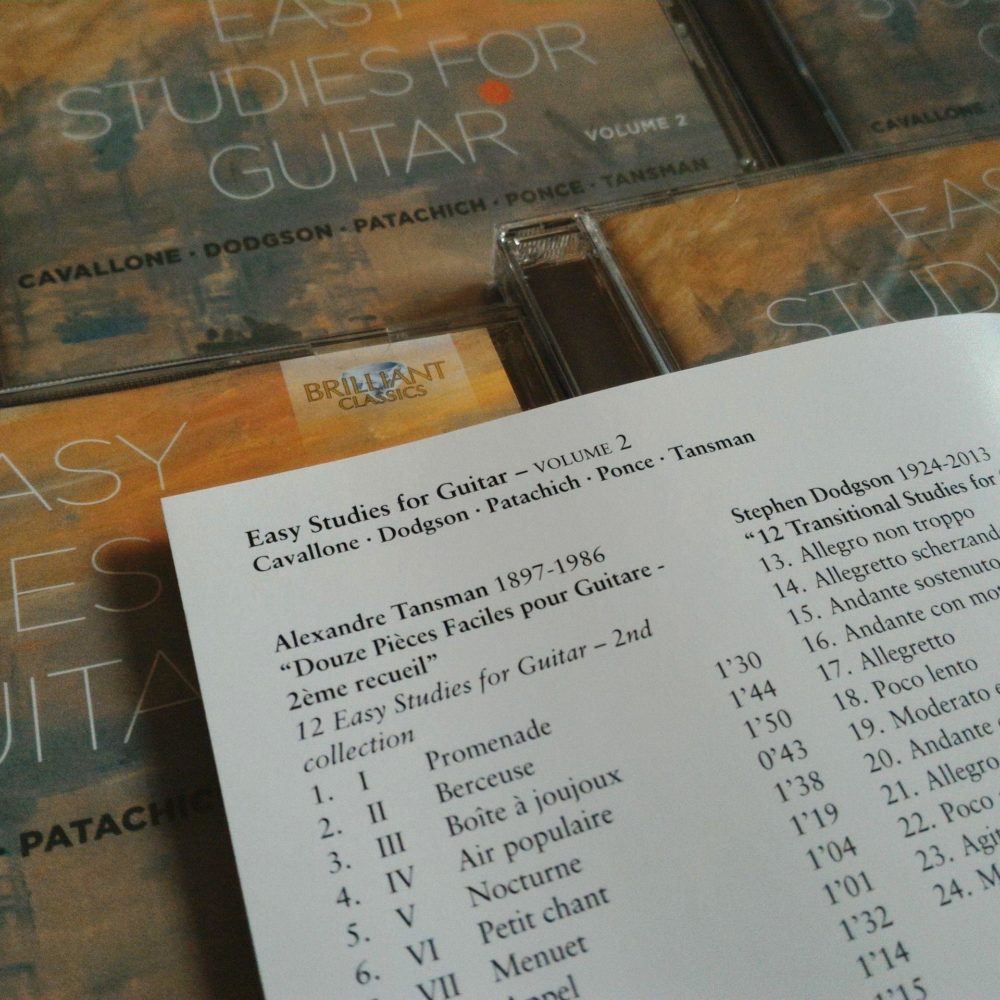 EASY
STUDIES FOR
GUITAR
VOLUME 2
CAVALLONE · DODGSON · PATACHICH · PONCE · TANSMAN
CAVALLONE
EAS
STUD
BRILLIANT
CLASSICS
ASY
ES
UITA
· PATACHIC
Easy Studies for Guitar – VOLUME 2
Cavallone · Dodgson · Patachich · Ponce · Tansman
Alexandre Tansman 1897-1986
“Douze Pièces Faciles pour Guitare -
2ème recueil”
12 Easy Studies for Guitar – 2nd
collection
1. I Promenade 1’30
2. II Berceuse 1’44
3. III Boîte à joujoux 1’50
4. IV Air populaire 0’43
5. V Nocturne 1’38
6. VI Petit chant 1’19
VII Menuet 1’04
1’01
1’32
1’14
1’15
Stephen Dodgson 1924-2013
“12 Transitional Studies for
13. Allegro non troppo
14. Allegretto scherzand
15. Andante sostenuto
16. Andante con mot
17. Allegretto
18. Poco lento
19. Moderato e
20. Andante
21. Allegro
22. Poco
23. Agit
24. M